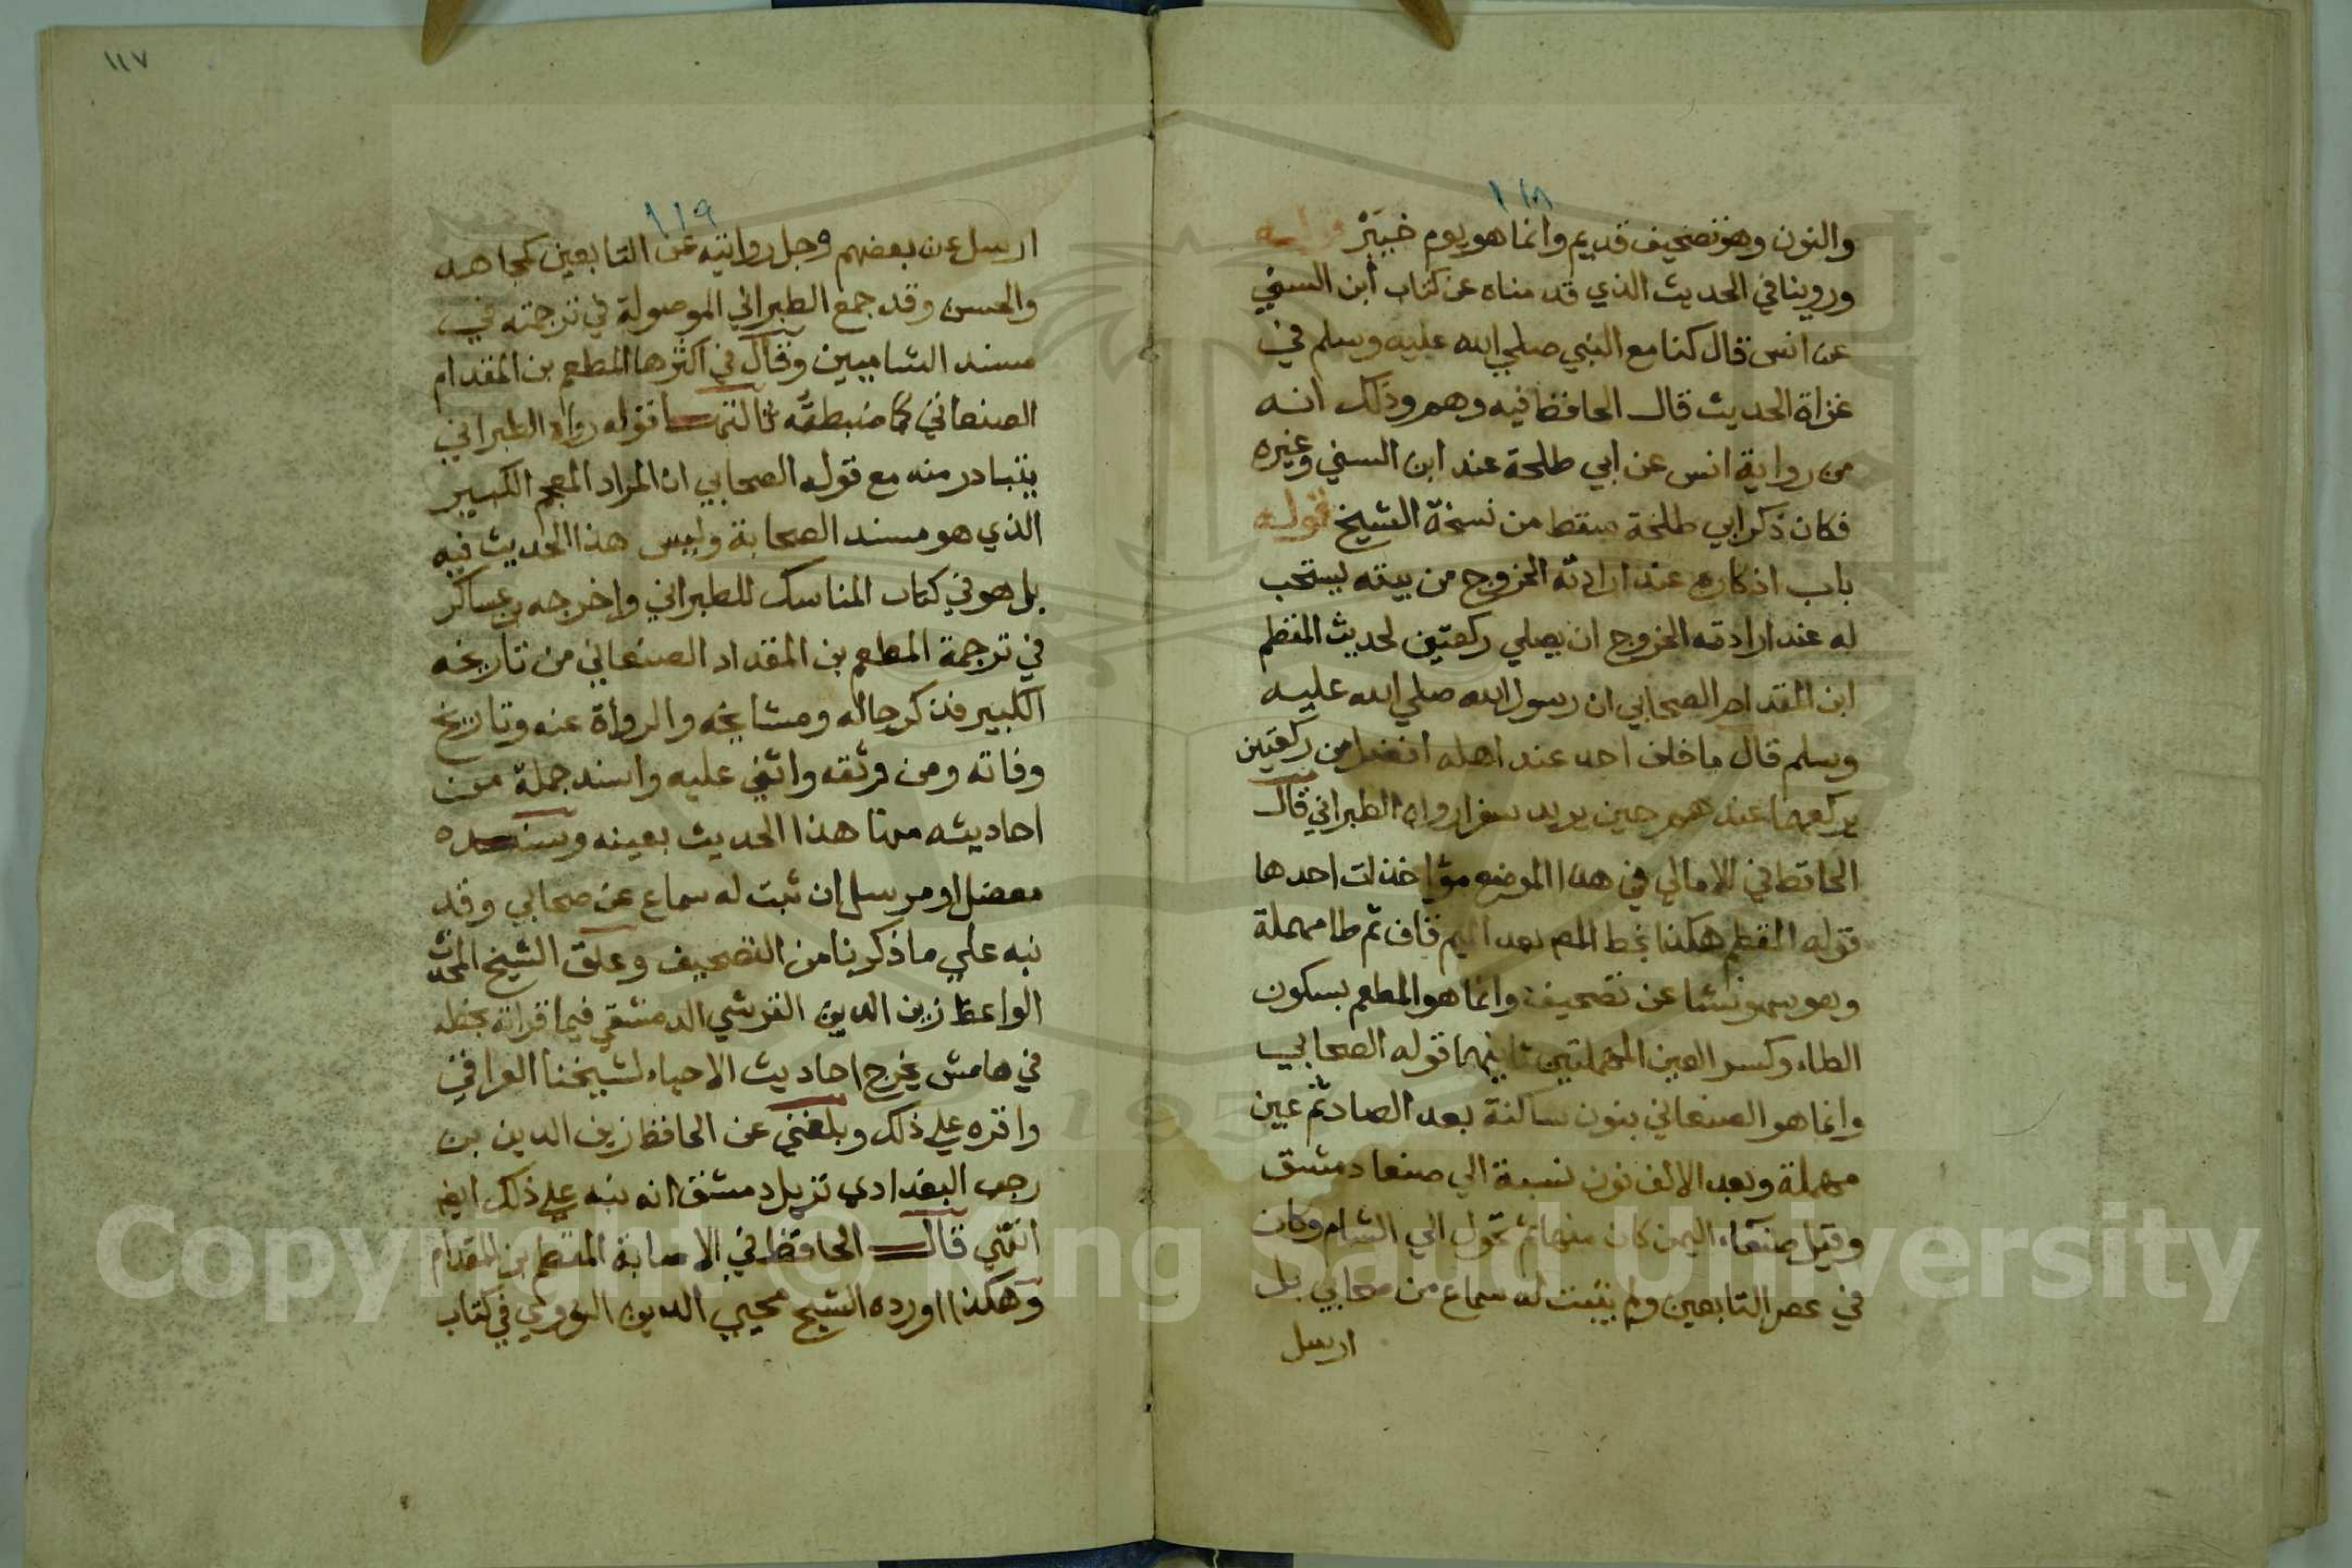 ١١٨
والنون وهو تصحيف قديم وانما هو يوم خيبر قوله
وروينا في الحديث الذي قدمناه عن كتاب ابن السني
عن انس قال كنا مع النبي صلي الله عليه وسلم في
غزاة الحديث قال الحافظ فيه وهم وذلك انه
من رواية انس عن ابي طلحة عند ابن السني وغيره
فكان ذكر ابي طلحة سقط من نسخة الشيخ قوله
باب اذكاره عند ارادته الخروج من بيته يستحب
له عند ارادته الخروج ان يصلي ركعتين لحديث المقطم
ابن المقدام الصحابي ان رسول الله صلي الله عليه
وسلم قال ما خلف احد عند اهله افضل من ركعتين
يركعهما عندهم حين يريد سفرا رواه الطبراني قال
الحافظ في الامالي في هذا الموضع مؤاخذات احدها
قوله المقطم هكذا بخط المص بعد الميم قاف ثم طا مهملة
وهو سهو نشا عن تصحيف وانما هو المطعم بسكون
الطاء وكسر العين المهملتين ثانيهما قوله الصحابي
وانما هو الصنعاني بنون ساكنة بعد الصاد ثم عين
مهملة وبعد الالف نون نسبة الي صنعا دمشق
وقيل صنعاء اليمن كان منها ثم تحول الي الشام وكان
في عصر التابعين ولم يثبت له سماع من صحابي بل
ارسل
١١٧
١١٩
ارسل عن بعضهم وجل روايته عن التابعين كمجاهد
والحسن وقد جمع الطبراني الموصولة في ترجمته في
مسند الشاميين وقال في اكثرها المطعم بن المقدام
الصنعاني كما ضبطته قوله رواه الطبراني
يتبادر منه مع قوله الصحابي ان المراد المعجم الكبير
الذي هو مسند الصحابة وليس هذا الحديث فيه
بل هو في كتاب المناسك للطبراني واخرجه بن عساكر
في ترجمة المطعم بن المقداد الصنعاني من تاريخه
الكبير فذكر حاله ومشايخه والرواة عنه وتاريخ
وفاته ومن وثقه واثني عليه واسند جملة من
احاديثه منها هذا الحديث بعينه وسنده
معضل او مرسل إن ثبت له سماع عن صحابي وقد
نبه علي ما ذكرنا من التصحيف وعلق الشيخ المحدث
الواعظ زين الدين القرشي الدمشقي فيما قراته بخطه
في هامش تخرج احاديث الاحياء لشيخنا العراقي
واقره علي ذلك وبلغني عن الحافظ زين الدين بن
رجب البغدادي نزيل دمشق انه نبه علي ذلك ايض
انتهي قال الحافظ في الاصابة المقطم بن المقدام
وهكذا اورده الشيخ محيي الدين النووي في كتاب
Copyright © King Saud University